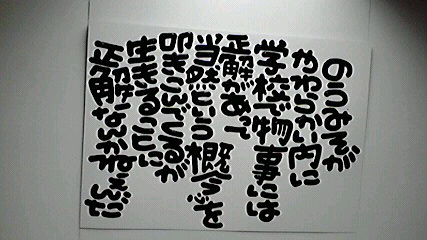 のうみそが
やわらかい内に
学校で物事には
正解があって
当然という概念を
叩きこんでくるが
生きることに
正解なんかねぇんだ